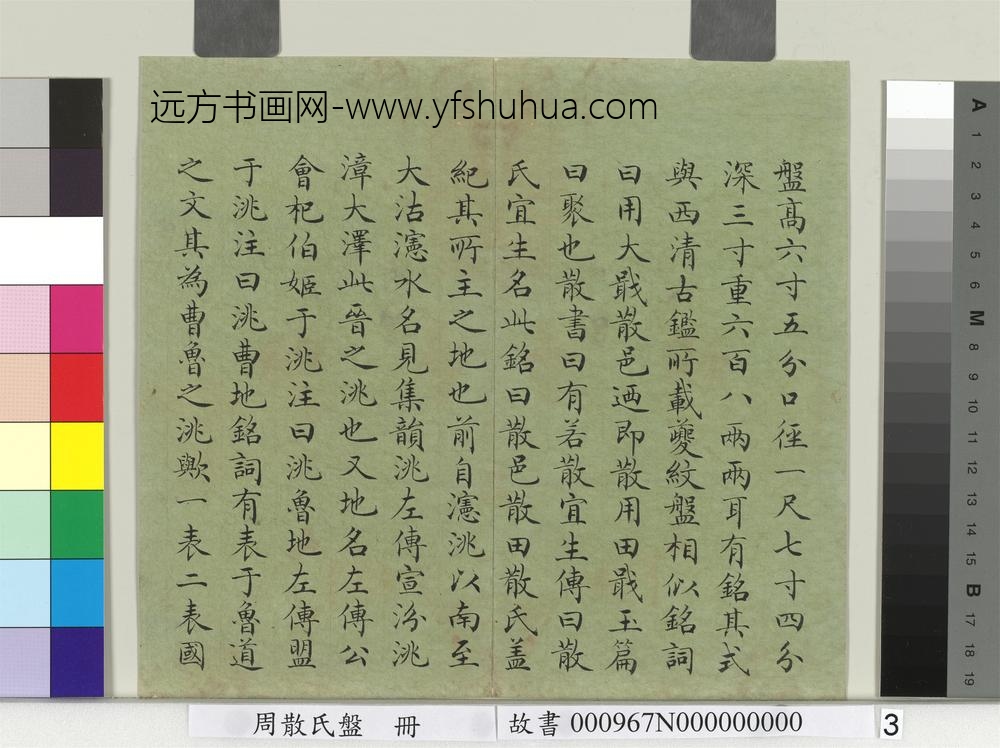 远方书画网-www.yfshuhua.com
盤高六寸五分口徑一尺七寸四分
深三寸重六百八兩兩耳有銘其式
與西清古鑑所載夔紋盤相似銘詞
曰用大戢散邑迺即散用田戢玉篇
曰聚也散書曰有若散宜生傳曰散
氏宜生名此銘曰散邑散田散氏盖
紀其所主之地也前自瀗洮以南至
大沽瀗水名見集韻洮左傳宣汾洮
漳大澤此晉之洮也又地名左傳公
會杞伯姬于洮注曰洮魯地左傳盟
于洮注曰洮曹地銘詞有表于魯道
之文其為曹魯之洮歟一表二表國
周散氏盤 冊
故書 000967N000000000
3
A 1 2 3 4 5 6 M 8 9 10 11 12 13 14 15 B 17 18 19